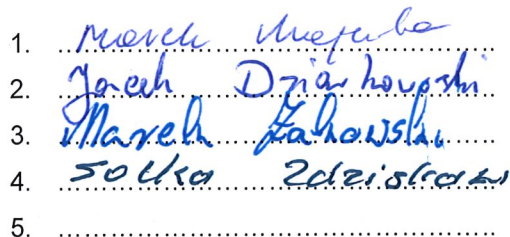 1. Marek
2. Jacek Dziarkowski
3. Marek Żakowski
4. Sołka Zdzisław
5.